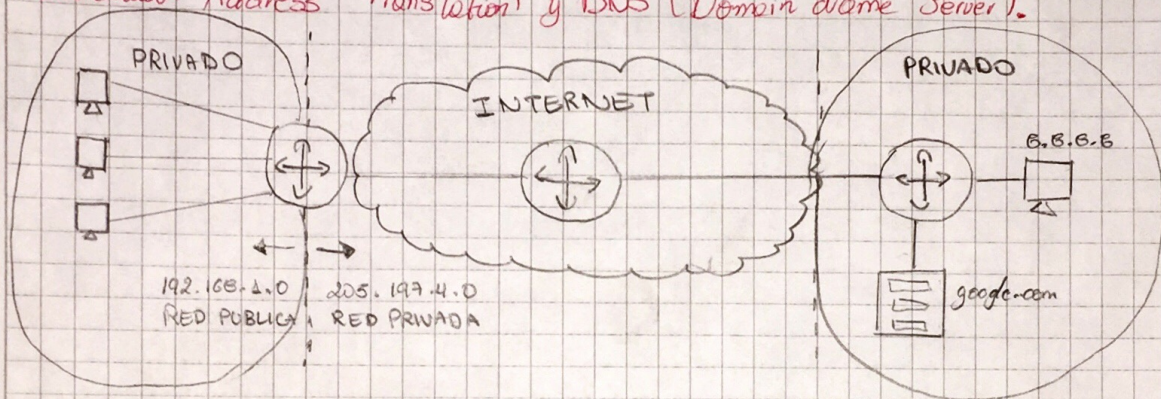 Address Translation) y DNS (Domain Name Server).
PRIVADO
INTERNET
PRIVADO
8.8.8.8
192.168.1.0
205.197.4.0
RED PUBLICA
RED PRIVADA
google.com